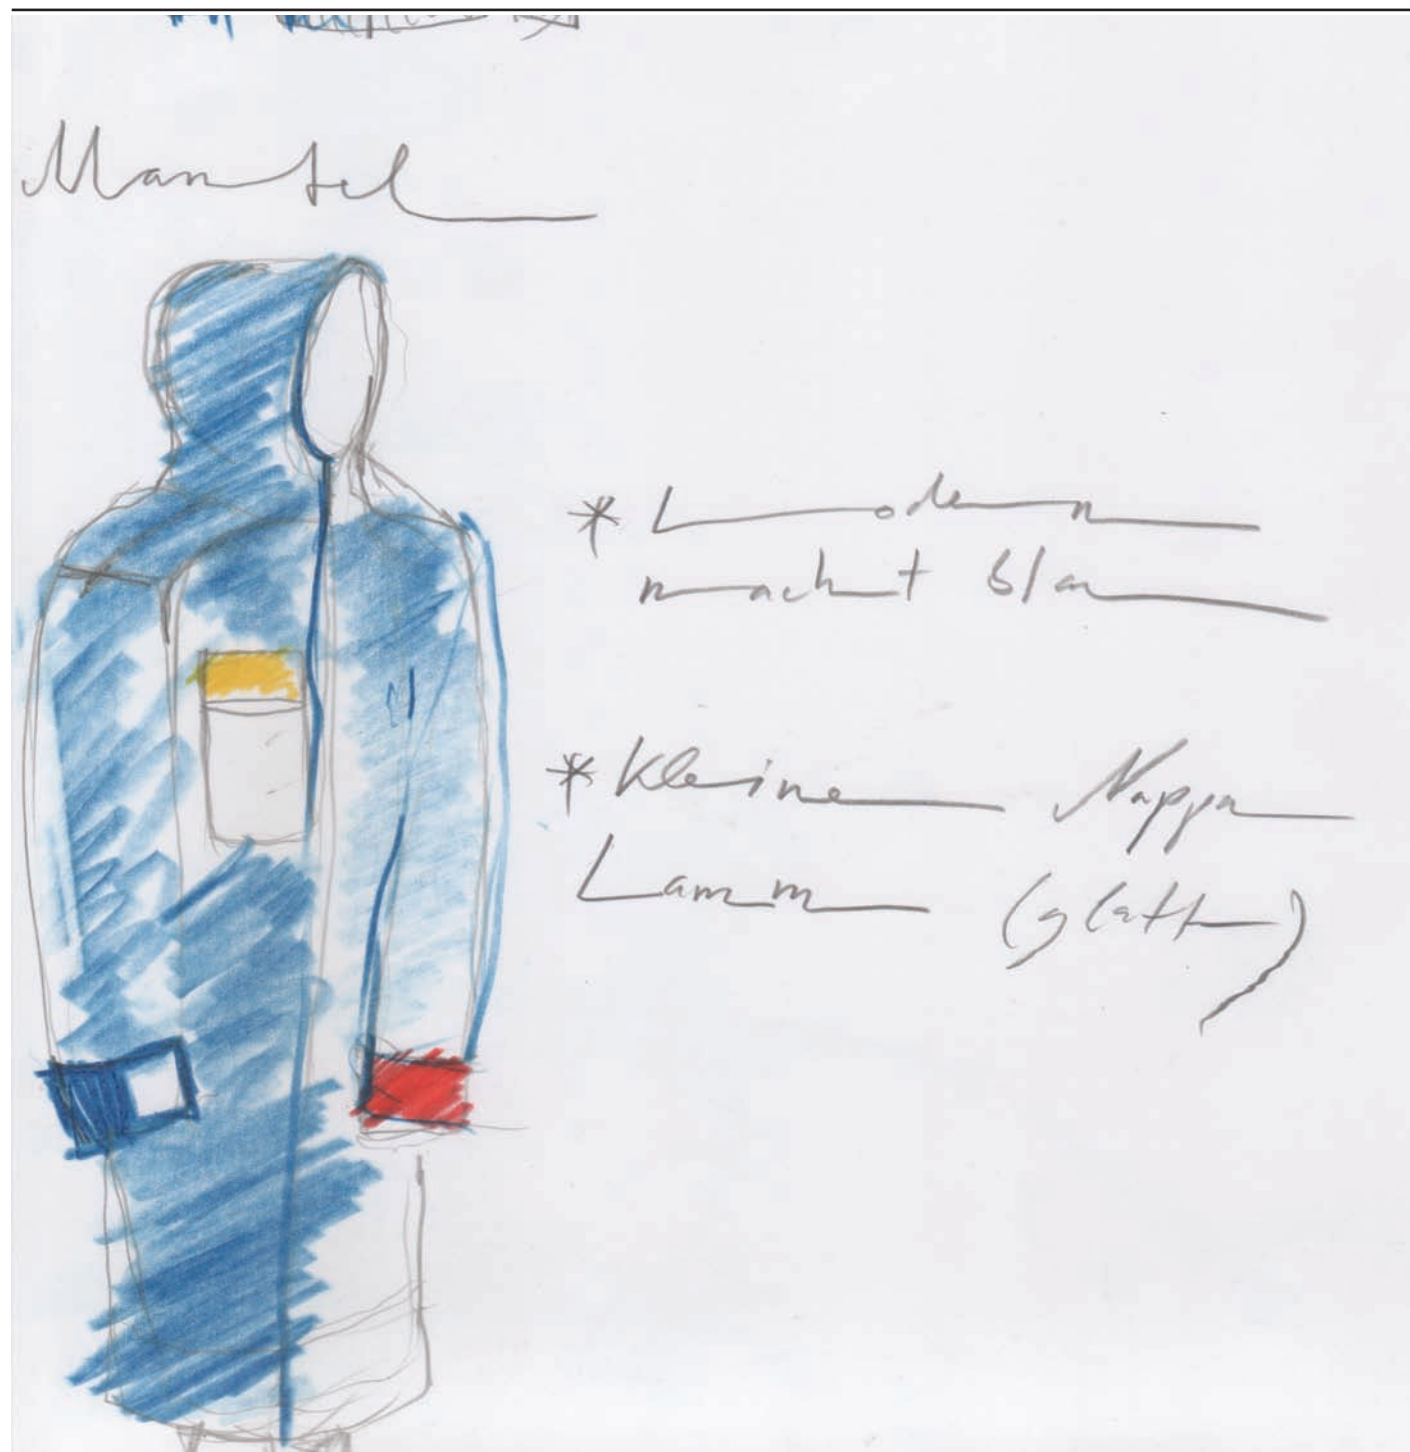 Mantel
* Loden
nacht blau
* Kleine Nappa
Lamm (glatt)